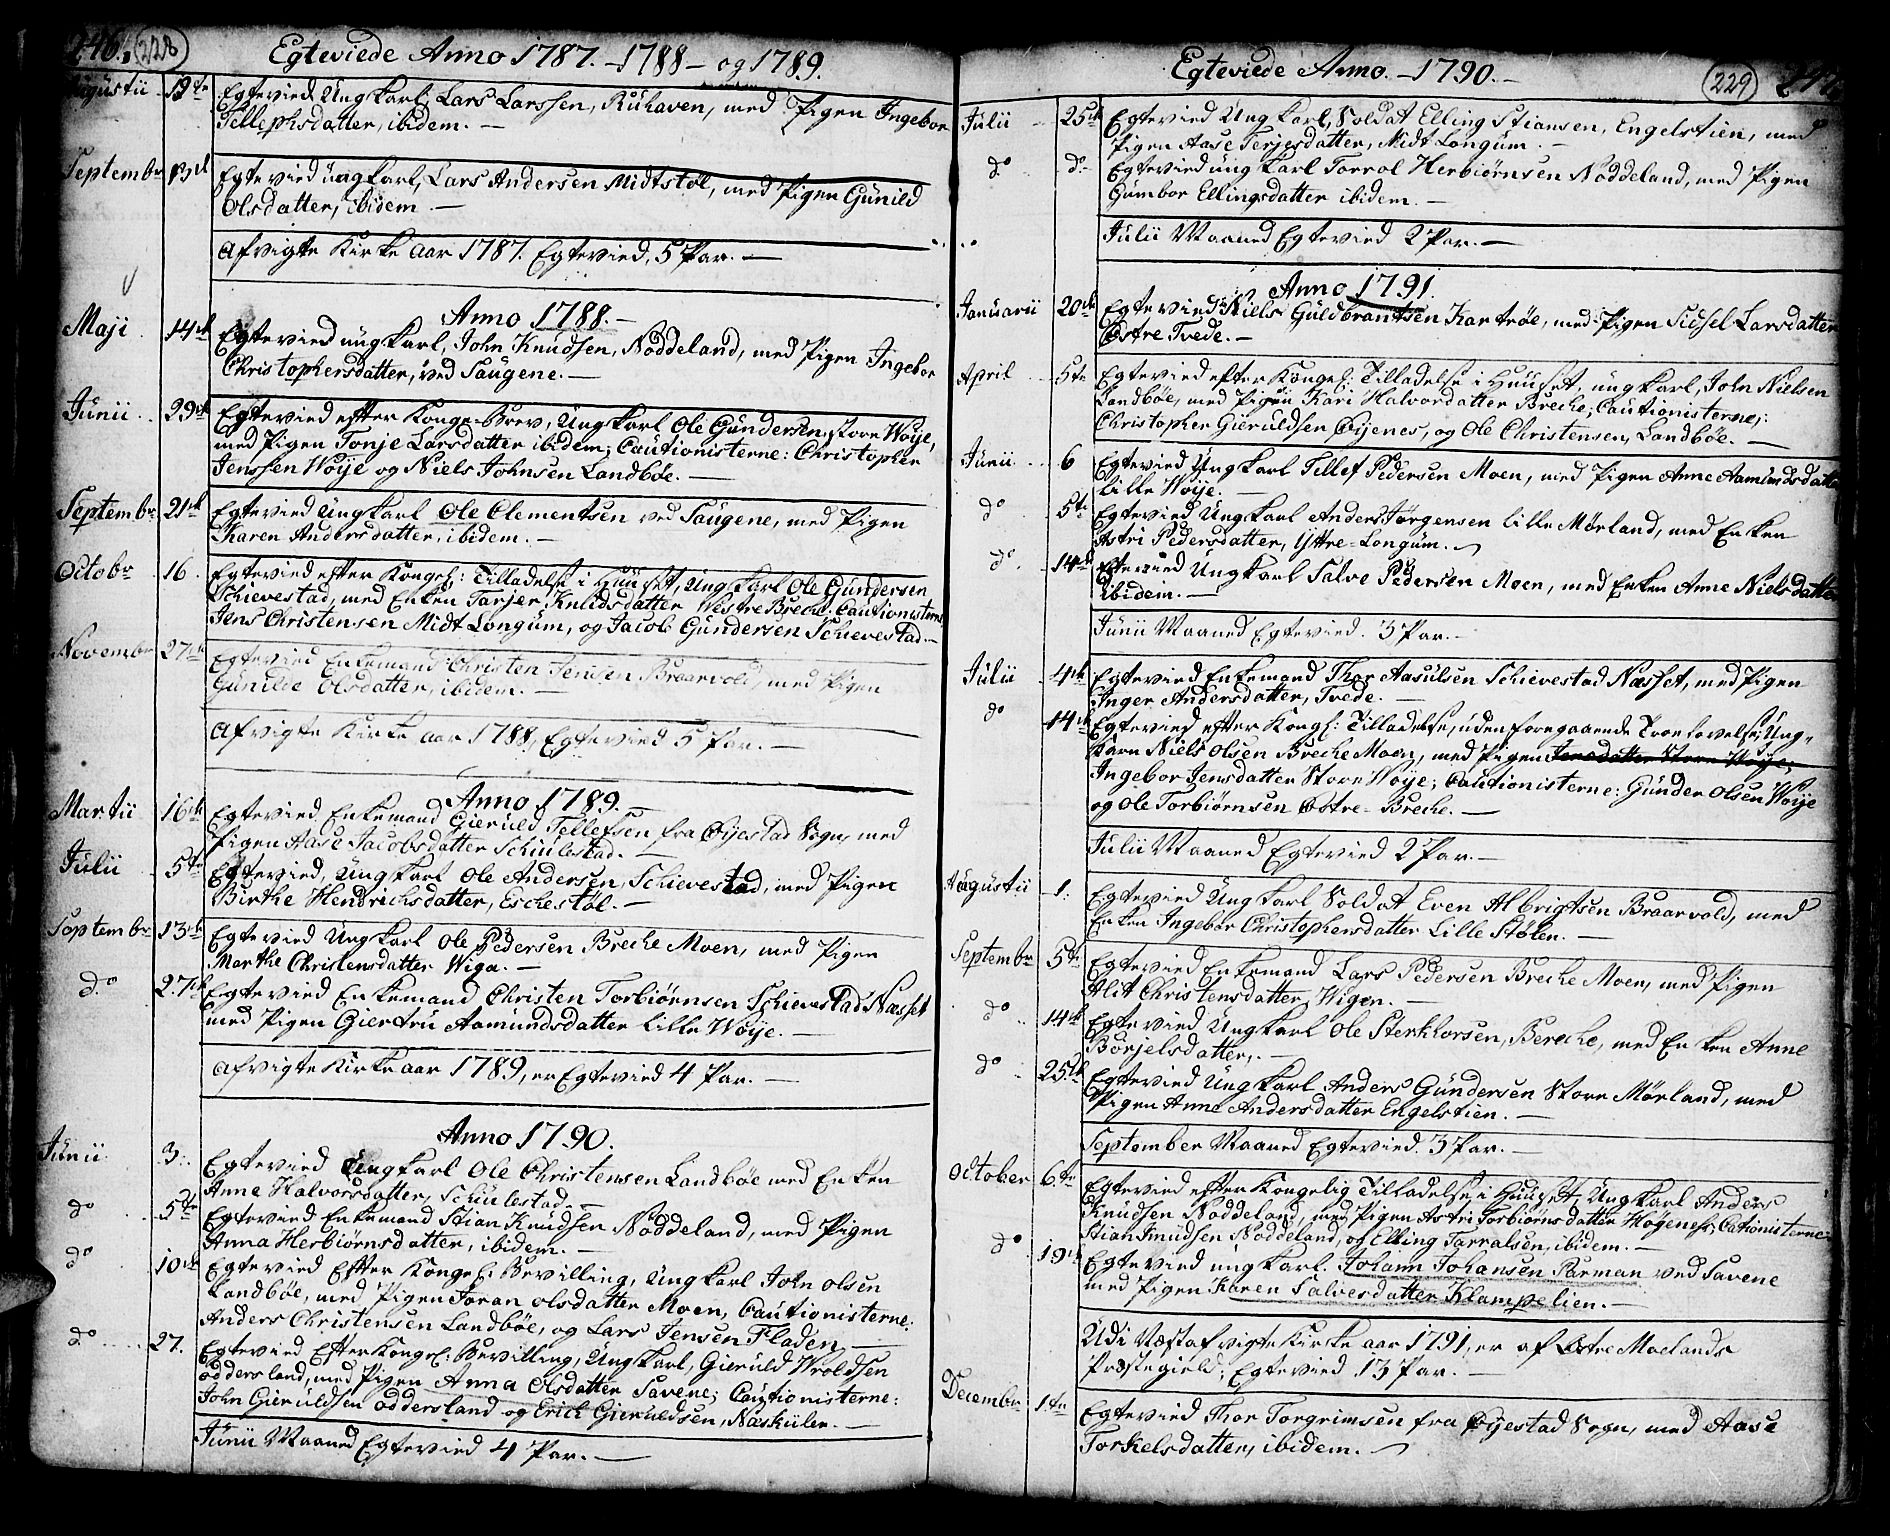 246. 228
Egteviede Anno 1787. - 1788 - og 1789.
Augustii 19te Egtevied Ungkarl, Lars Larssen, Ruhaven, med Pigen Ingebor
Tellephsdatter, ibidem. -
Septembr Egtevied ungkarl, Lars Andersen Midtstøl, med Pigen Gunild
Olsdatter, ibidem -
Afvigte Kirke aar 1787. Egtevied, 5 Par. -
Anno 1788. -
Maji 14de Egtevied ungkarl, John Knudsen, Nøddeland, med Pigen Ingebor
Christophersdatter, ved Saugene. -
Junii 29de Egtevied efter Konge-Brev, Ungkarl Ole Gundersen, store Woije,
med Pigen Tonje Larsdatter ibidem; Cautionisterne: Christopher
Jenssen Woije og Niels Johnsen Landbøe. -
Septembr 21de Egtevied Ungkarl Ole Clementsen ved Saugene, med Pigen
Karen Andersdatter, ibidem. -
Octobr 16. Egtevied efter Kongel: Tilladelse i Huuset, Ungkarl Ole Gundersen
Schievestad, med Enken Tarjer Knudsdatter Westre Breche. Cautionisterne
Jens Christensen Midt Longum, og Jacob Gundersen Schievestad. -
Novembr 27de Egtevied Enkemand Christen Jensen Braarvold, med Pigen
Gunilde Olsdatter, ibidem. -
Afvigte Kirke aar 1788, Egtevied 5 Par. -
Anno 1789. -
Martii 16de Egtevied Enkemand Gieruld Tellefsen fra Øyestad Sogn, med
Pigen Aase Jacobsdatter Schiulestad. -
Julii 5te Egtevied, Ungkarl Ole Andersen, Schievestad, med Pigen
Birthe Hendrichsdatter, Eschestøl. -
Septembr 13de Egtevied Ungkarl Ole Pedersen Breche Moen, med Pigen
Marthe Christensdatter Wiga. -
do 27de Egtevied Enkemand Christen Torbiørnsen Schievestad Næsset
med Pigen Giertru Aamundsdatter lille Woije. -
Afvigte Kirke aar 1789, er Egtevied 4 Par. -
Anno 1790.
Junii 3. Egtevied Ungkarl Ole Christensen Landbøe med Enken
Anne Halvorsdatter, Schiulestad. -
do 5te Egtevied Enkemand Stian Knudsen Nøddeland, med Pigen
Anna Herbiørnsdatter, ibidem. -
do 10de Egtevied Efter Kongel: Bevilling, Ungkarl John olsen
Landbøe, med Pigen Joran olsdatter Moen, Cautionisterne:
Anders Christensen Landbøe, og Lars Jensen Fladen -
do 27. Egtevied Efter Kongel: Bevilling, Ungkarl, Gieruld Wroldsen
oddersland, med Pigen Anna Olsdatter Savene; Cautionisterne:
John Gieruldsen oddersland og Erich Gieruldsen, Naskulen. -
Junii Maaned Egtevied 4 Par. -
Egteviede Anno. - 1790. -
229
Julii 25de Egtevied Ungkarl, Soldat Elling Stiansen, Engelstien, med
Pigen Aase Terjesdatter, Midt Longum. -
do do Egtevied ungkarl Torrol Herbiørnsen Nøddeland, med Pigen
Gumbor Ellingsdatter ibidem. -
Julii Maaned Egtevied 2 Par. -
Anno 1791.
Januarii 20de Egtevied Niels Guldbrantsen Kartrøe, med Pigen Sidsel Larsdatter
Østre Tvede. -
April 5te Egtevied efter Kongel: Tilladelse i Huuset, ungkarl, John Nielsen
Landbøe, med Pigen Kari Halvordatter Breche; Cautionisterne;
Christopher Gieruldsen Øijenes, og Ole Christensen, Landbøe. -
Junii 6 Egtevied Ungkarl Tellef Pedersen Moen, med Pigen Anne Aamundsdatter
lille Woije. -
do 5te Egtevied Ungkarl Anders Jørgensen lille Mørland, med Enken
Astri Pedersdatter, Yttre-Longum.
do 14de Egtevied Ungkarl Salve Pedersen Moen, med Enken Anne Nielsdatter
ibidem. -
Junii Maaned Egtevied. 3 Par. -
Julii 4de Egtevied Enkemand Thor Aasulsen Schievestad Næsset, med Pigen
Inger Andersdatter, Tvede. -
do 14de Egtevied efter Kongl: Tilladelse, uden foregaaende Troelovelse, Ung-
karn Niels Olsen Breche Moen, med Pigen Jensdatter Store Woije;
Ingebor Jensdatter Store Woije; Cautionisterne: Gunder Olsen Woije
og Ole Torbiørnsen Østre-Breche. -
Julii Maaned Egtevied 2 Par. -
Augustii 1. Egtevied Ungkarl Soldat Even Albrigtsen Braarvold, med
Enken Ingebor Christophersdatter Lille Stølen. -
Septembr 5te Egtevied Enkemand Lars Pedersen Breche Moen, med Pigen
Alit Christensdatter, Wigen. -
do 14de Egtevied Ungkarl Ole Sterkhorsen, Bereche, med Enken Anne
Børjelsdatter, -
do 25de Egtevied Ungkarl Anders Gundersen Store Mørland, med
Pigen Anne Andersdatter Engelstien. -
September Maaned Egtevied. 3 Par. -
October 6te Egtevied efter Kongelig Tilladelse i Huuset, Ungkarl Anders
Knudsen Nøddeland, med Pigen Astri Torbiørnsdatter Høgenes, Cationisterne:
Stian Knudsen Nøddeland, og Elling Tarralsen, ibidem. -
do 19de Egtevied ungkarl. Johann Johansen Parman ved Savene
med Pigen Karen Salvesdatter Klampelien. -
Udi Næstafvigte Kirke aar 1791, er af Østre Moelands
Præstegield; Egtevied 13 Par. -
Decembr 1te Egtevied Thor Torgrimsen fra Øyestad Sogn, med Aase
Torkelsdatter, ibidem.